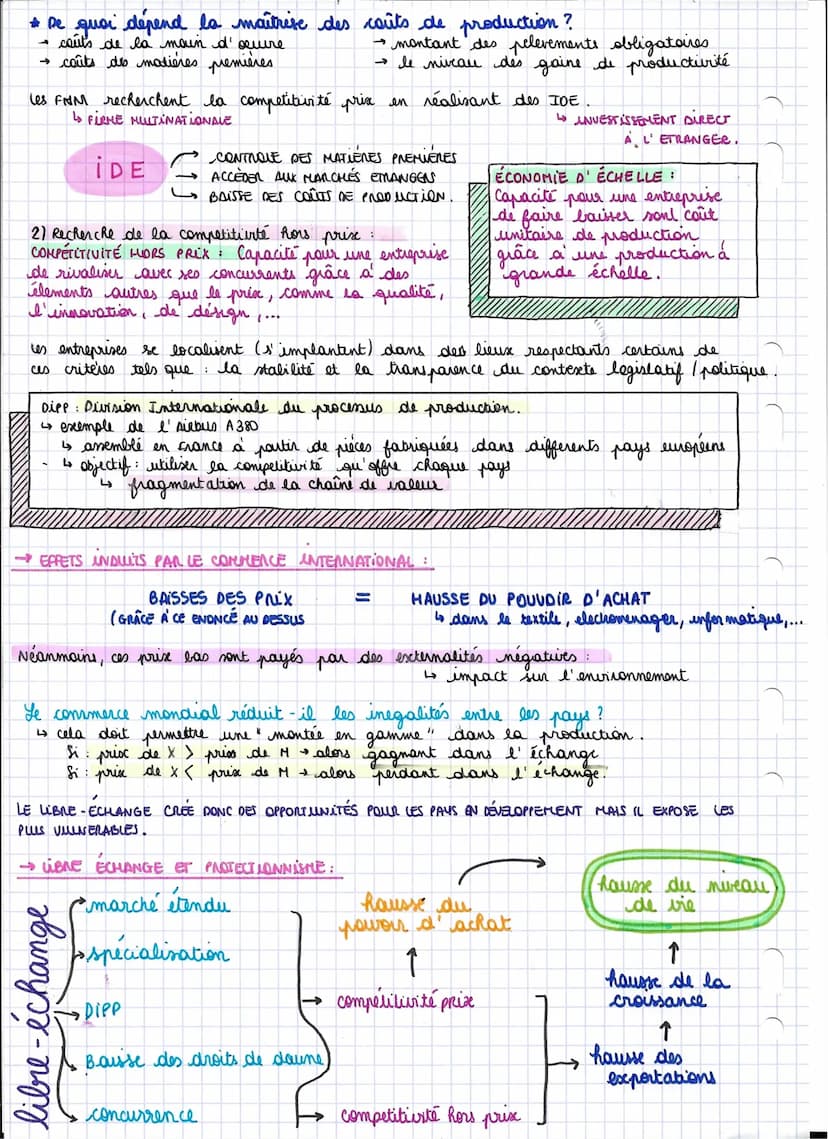 * De quoi dépend la maîtrise des coûts de production ?
→ coûts de la main d'œuvre → montant des pelevements obligatoires
→ coûts des matières premières → le niveau des gains de productivité
Les FNM recherchent la competitivité prix en réalisant des IDE.
↳ FIRME MULTINATIONALE ↳ INVESTISSEMENT DIRECT
À L'ETRANGER.
IDE
→ CONTROLE DES MATIÈRES PREMIÈRES
→ ACCÉDER AUX MARCHÉS ETRANGERS
↳ BAISSE DES COÛTS DE PRODUCTION.
ÉCONOMIE D'ÉCHELLE :
Capacité pour une entreprise
de faire baisser sont coût
unitaire de production
grâce à une production à
grande échelle.
2) Recherche de la competitivité hors prix :
COMPÉTITIVITÉ HORS PRIX : Capacité pour une entreprise
de rivaliser avec ses concurrents grâce à des
élements autres que le prix, comme la qualité,
l'innovation, de désign,...
Les entreprises se localisent (s'implantent) dans des lieux respectants certains de
ces critères tels que : la stabilité et la transparence du contexte legislatif / politique.
DIPP : Division Internationale du processus de production.
↳ exemple de l'Airbus A380
↳ assemblé en France à partir de pièces fabriquées dans differents pays européens
- ↳ objectif : utiliser la competitivité qu'offre chaque pays
↳ fragmentation de la chaîne de valeur
→ EFFETS INDUITS PAR LE COMMERCE INTERNATIONAL :
BAISSES DES PRIX = HAUSSE DU POUVOIR D'ACHAT
(GRÂCE À CE ENONCÉ AU DESSUS ↳ dans le textile, electromenager, informatique,...
Néanmoins, ces prix bas sont payés par des externalités négatives :
↳ impact sur l'environnement
Le commerce mondial réduit-il les inegalités entre les pays ?
↳ cela doit permettre une "montée en gamme" dans la production.
Si : prix de X > prix de M → alors gagnant dans l'échange
Si : prix de X < prix de M → alors perdant dans l'échange.
LE LIBRE-ÉCHANGE CRÉE DONC DES OPPORTUNITÉS POUR LES PAYS EN DÉVELOPPEMENT MAIS IL EXPOSE LES
PLUS VULNERABLES.
→ LIBRE ÉCHANGE ET PROTECTIONNISME :
libre-échange
marché étendu
spécialisation
DIPP
Baisse des droits de douane
concurrence
hausse du
pouvoir d'achat
compétitivité prix
competitivité hors prix
hausse du niveau
de vie
hausse de la
croissance
hausse des
exportations